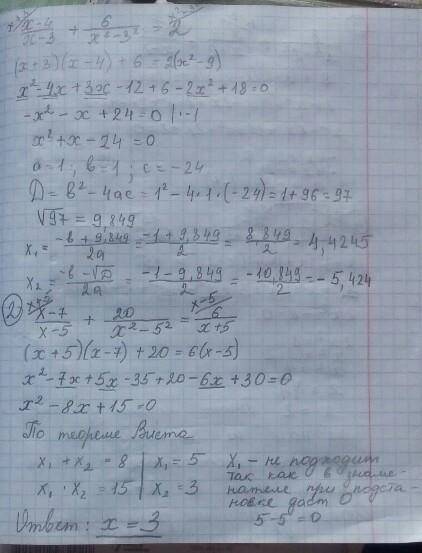 x-4/x-3 + 6/x²-3² = 2
(x+3)(x-4)+6=2(x²-9)
x²-4x+3x-12+6-2x²+18=0
-x²-x+24=0 |·-1
x²+x-24=0
a=1; b=1; c=-24
D=b²-4ac=1²-4·1·(-24)=1+96=97
√97=9,849
x₁=-b+9,849/2a=-1+9,849/2=8,849/2=4,4245
x₂=-b-√D/2a=-1-9,849/2=-10,849/2=-5,424
② x+5 x-5
x-7/x-5 + 20/x²-5² = 6/x+5
(x+5)(x-7)+20=6(x-5)
x²-7x+5x-35+20-6x+30=0
x²-8x+15=0
По теореме Виета
x₁+x₂=8 | x₁=5
x₁·x₂=15 | x₂=3
x₁ - не подходит
так как в знаме-
нателе при подста-
новке даст 0
5-5=0
Ответ: x=3